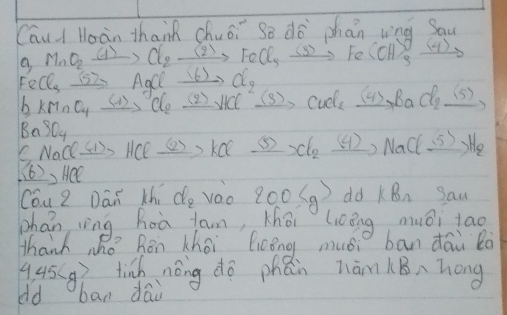 Câu 1 Hoàn thành chuỗi sơ đồ phản ứng sau
a, MnO2 (1)→ Cl2 (2)→ FeCl3 (3)→ Fe(OH)3 (4)→
FeCl3 (5)→ AgCl (6)→ Cl2
b KMnO4 (1)→ Cl2 (2)→ HCl (3)→ CuCl2 (4)→ BaCl2 (5)→
BaSO4
c NaCl (1)→ HCl (2)→ KCl (3)→ Cl2 (4)→ NaCl (5)→ H2
(6)→ HCl
Câu 2 Dẫn khí Cl2 vào 200(g) dd KBr sau
phản ứng hoà tan, khối lượng muối tạo
thành nhỏ hơn khối lượng muối ban đầu là
4,45(g) tính nồng độ phần trăm KBr trong
dd ban đầu